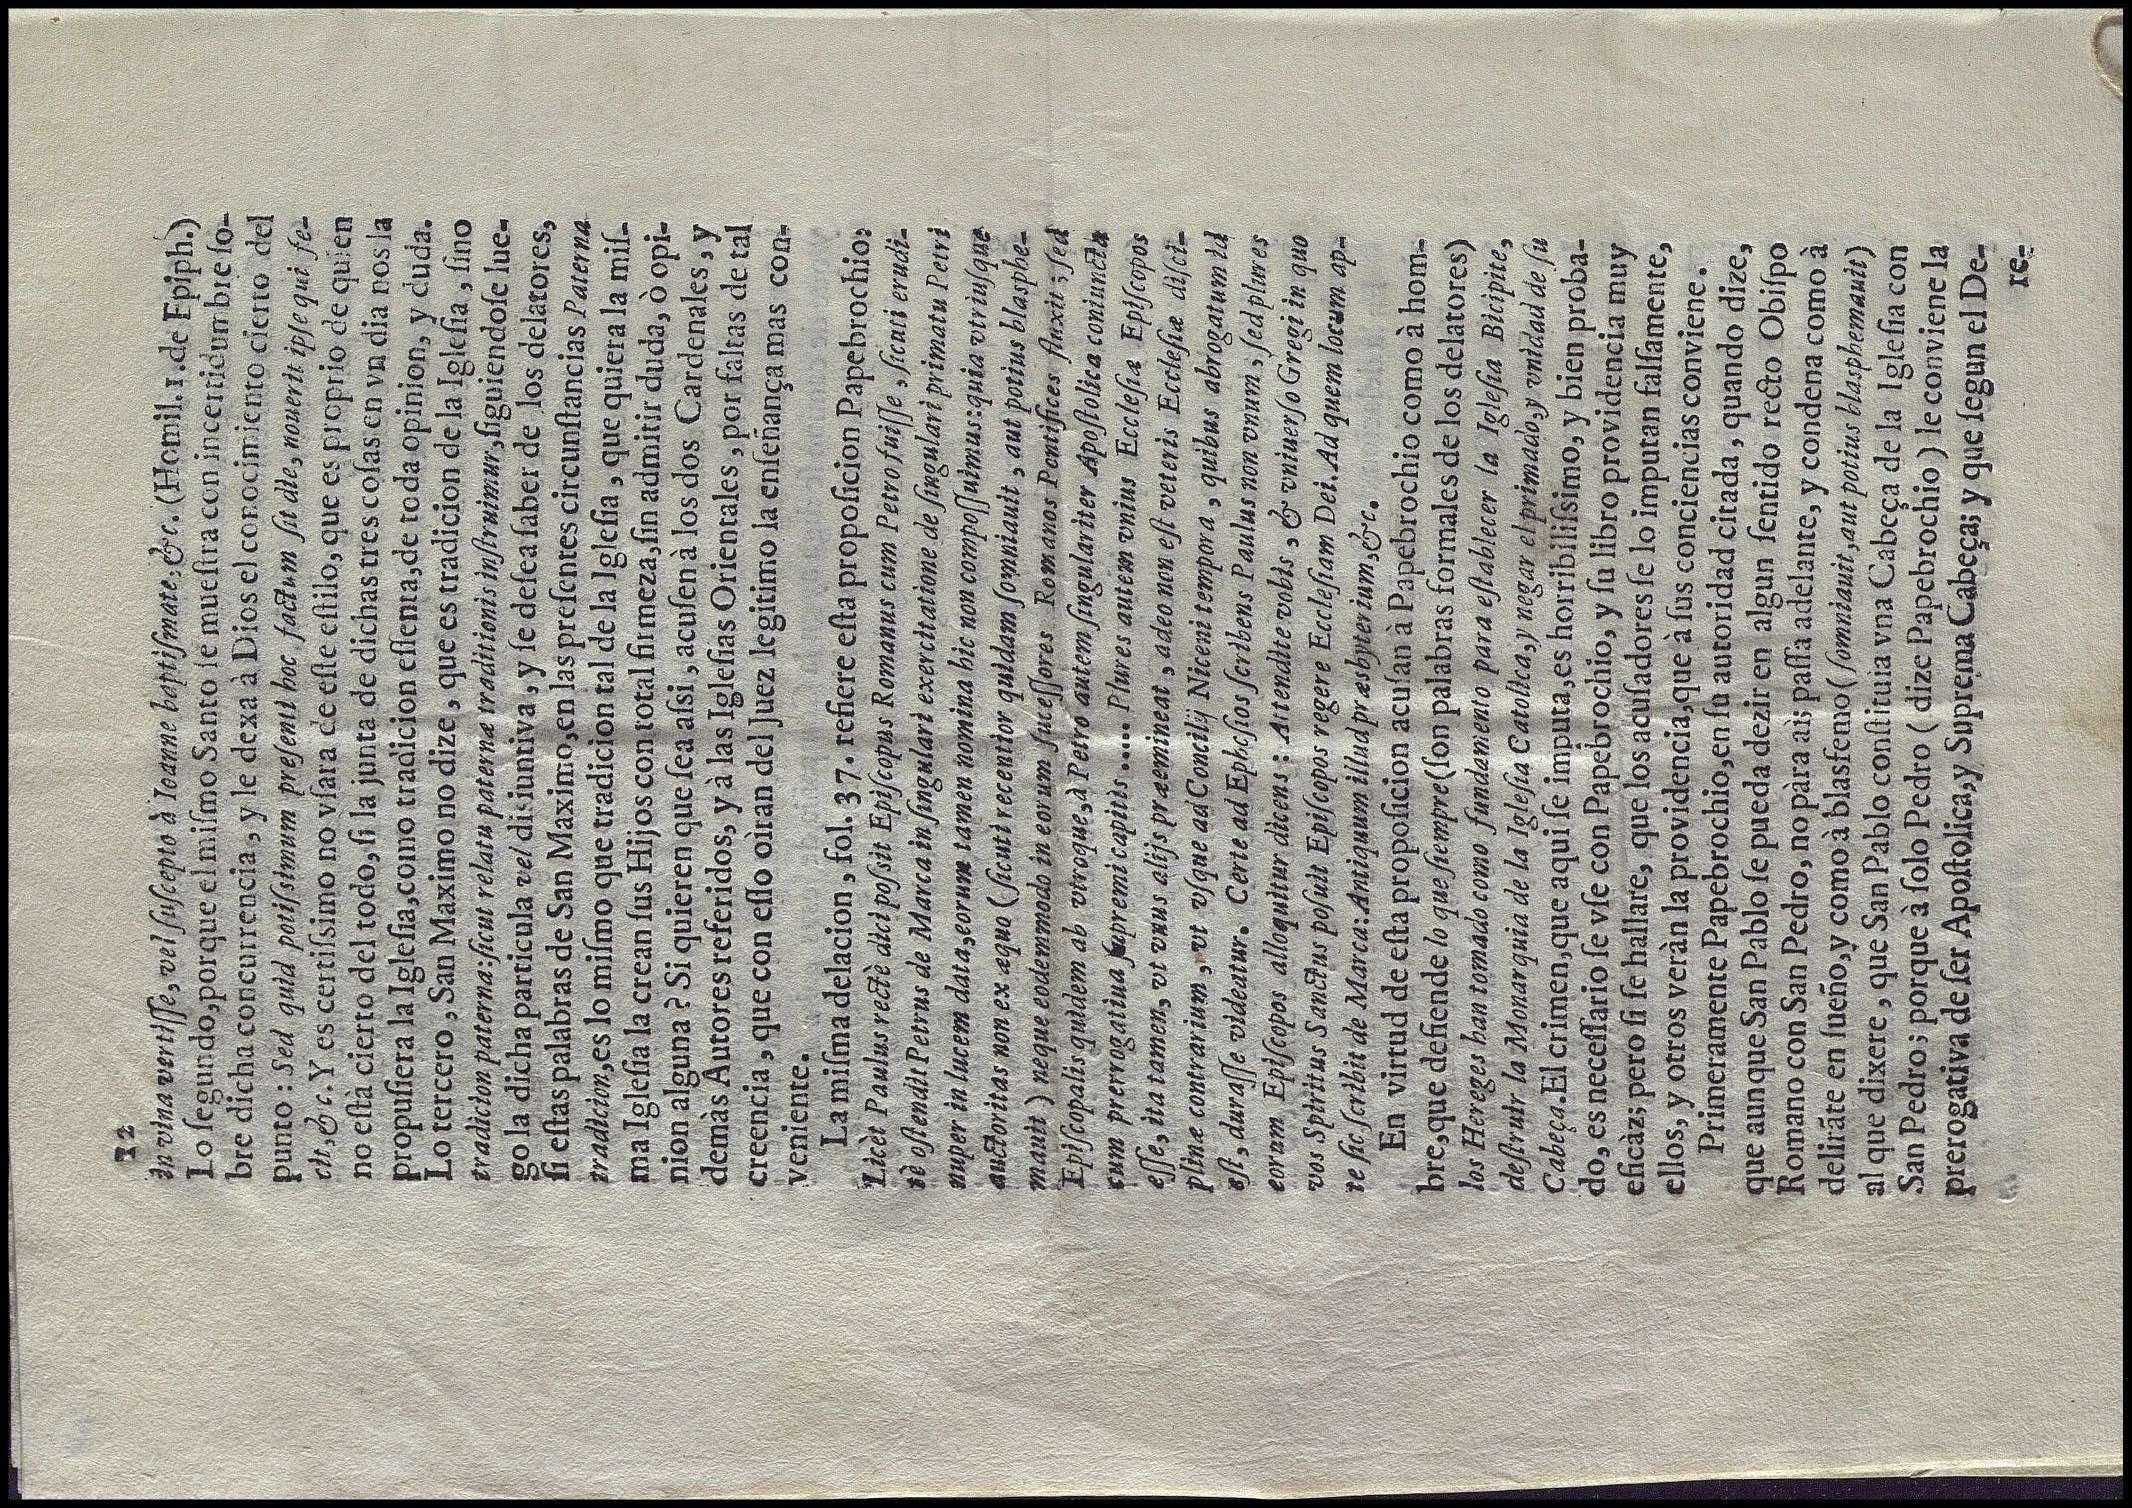 12
in vina vertisse, vel suscepto à Ioanne baptismate, &c. (Homil. 1. de Epiph.)
Lo segundo, porque el mismo Santo se muestra con incertidumbre so-
bre dicha concurrencia, y le dexa à Dios el conocimiento cierto del
punto: Sed quid potissimum presenti hoc factum sit die, noverit ipse qui fe-
cit, &c. Y es certissimo no vsara de este estilo, que es proprio de quien
no està cierto del todo, si la junta de dichas tres cosas en vn dia nos la
propusiera la Iglesia, como tradicion essenta, de toda opinion, y duda.
Lo tercero, San Maximo no dize, que es tradicion de la Iglesia, sino
tradicion paterna: sicut relatu paternæ traditionis instruimur, siguiendose lue-
go la dicha particula vel disiuntiva, y se desea saber de los delatores,
si estas palabras de San Maximo, en las presentes circunstancias Paterna
tradicion, es lo mismo que tradicion tal de la Iglesia, que quiera la mis-
ma Iglesia la crean sus Hijos con total firmeza, sin admitir duda, ò opi-
nion alguna? Si quieren que sea assi, acusen à los dos Cardenales, y
demàs Autores referidos, y à las Iglesias Orientales, por faltas de tal
creencia, que con esso oiràn del Juez legitimo la enseñança mas con-
veniente.
La misma delacion, fol. 37. refiere esta proposicion Papebrochio:
Licèt Paulus rectè dici possit Episcopus Romanus cum Petro fuisse, sicuti erudi-
tè ostendit Petrus de Marca in singulari exercitatione de singulari primatu Petri
nuper in lucem data, eorum tamen nomina hic non compossuimus: quia vtriusque
auctoritas non ex æquo (sicut recentior quidam somniauit, aut potius blasphe-
mauit) neque eodemmodo in eorum sucessores Romanos Pontifices fluxit; sed
Episcopalis quidem ab vtroque, à Petro autem singulariter Apostolica coniuncta
cum prerrogatiua supremi capitis..... Plures autem vnius Ecclesiæ Episcopos
esse, ita tamen, vt vnus alijs præmineat, adeo non est veteris Ecclesiæ disci-
plinæ contrarium, vt vsque ad Concilij Niceni tempora, quibus abrogatum id
est, durasse videatur. Certe ad Ephesios scribens Paulus non vnum, sed plures
eorum Episcopos alloquitur dicens: Attendite vobis, & vniuerso Gregi in quo
vos Spiritus Sanctus posuit Episcopos regere Ecclesiam Dei. Ad quem locum ap-
te sic scribit de Marca: Antiquum illud præsbyterium, &c.
En virtud de esta proposicion acusan à Papebrochio como à hom-
bre, que defiende lo que siempre (son palabras formales de los delatores)
los Hereges han tomado como fundamento para establecer la Iglesia Bicipite,
destruir la Monarquia de la Iglesia Catolica, y negar el primado, y vnidad de su
Cabeça. El crimen, que aqui se imputa, es horribilissimo, y bien proba-
do, es necessario se vse con Papebrochio, y su libro providencia muy
eficàz; pero si se hallare, que los acusadores se lo imputan falsamente,
ellos, y otros veràn la providencia, que à sus conciencias conviene.
Primeramente Papebrochio, en su autoridad citada, quando dize,
que aunque San Pablo se pueda dezir en algun sentido recto Obispo
Romano con San Pedro, no pàra aì; passa adelante, y condena como à
delirãte en sueño, y como à blasfemo (somniauit, aut potius blasphemauit)
al que dixere, que San Pablo constituia vna Cabeça de la Iglesia con
San Pedro; porque à solo Pedro (dize Papebrochio) le conviene la
prerogativa de ser Apostolica, y Suprema Cabeça; y que segun el De-
re-